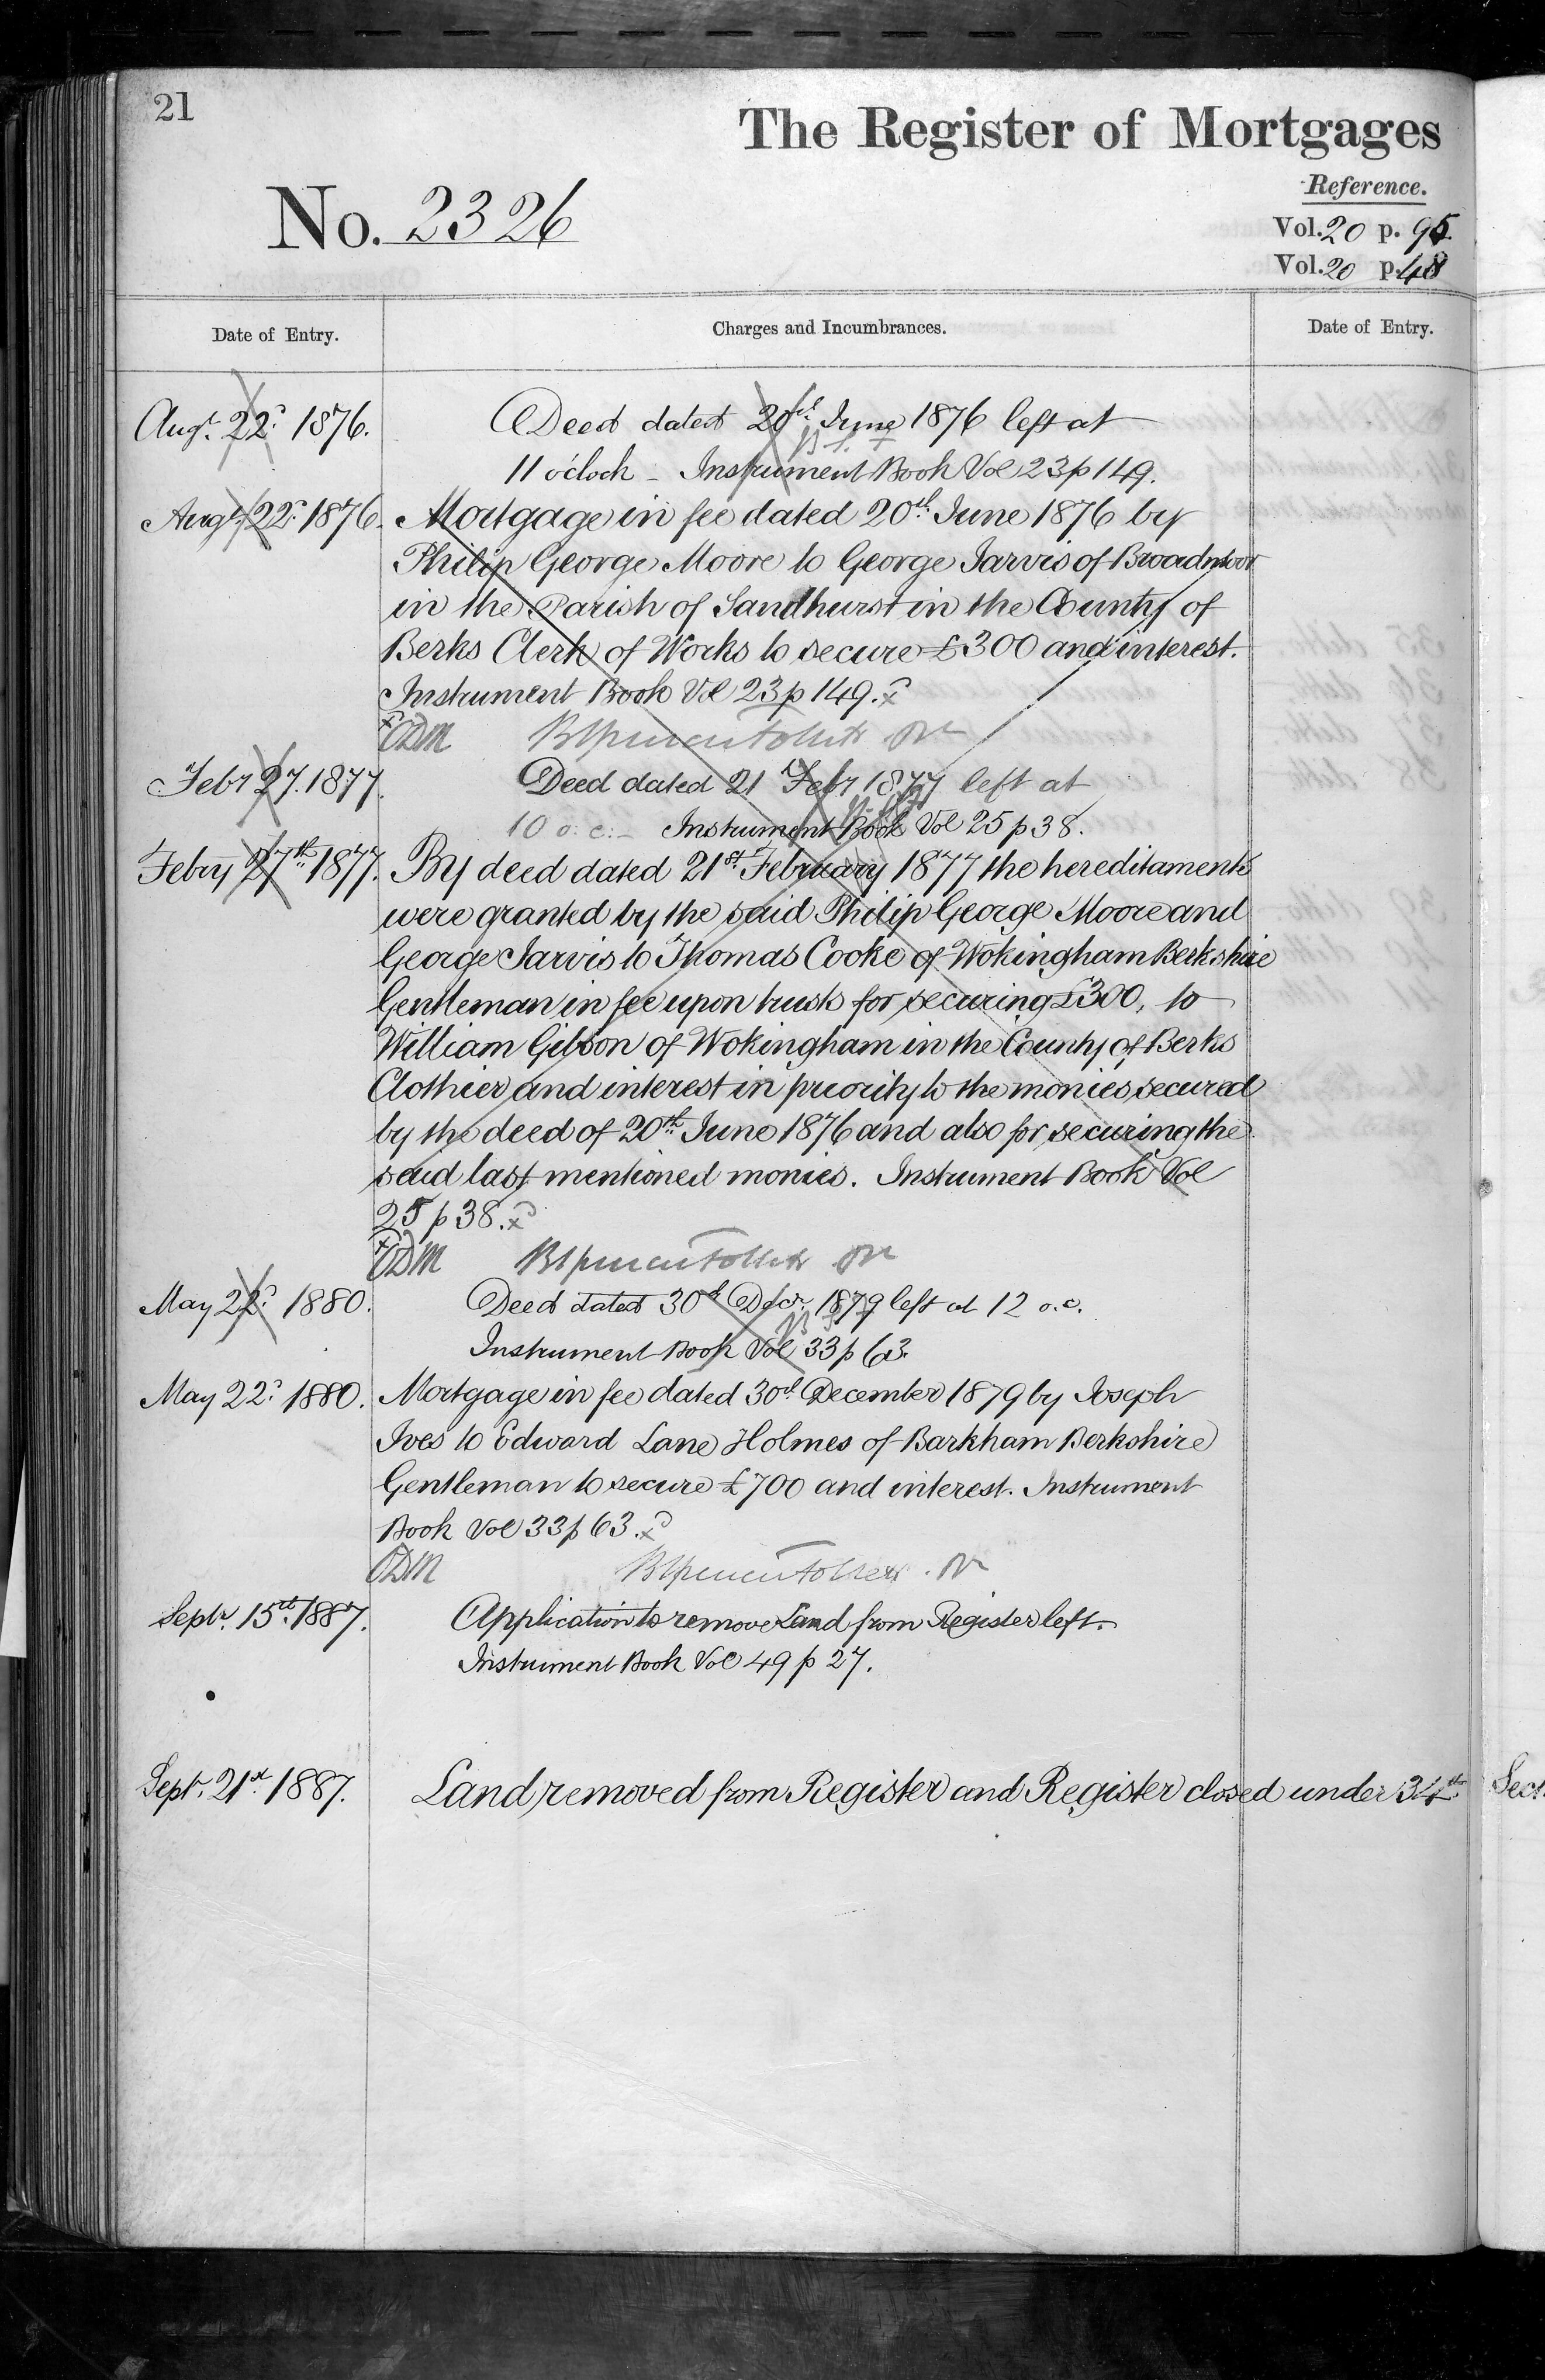 21
The Register of Mortgages
No. 2326
Reference.
Vol. 20 p. 95
Vol. 20 p. 48
Date of Entry. Charges and Incumbrances. Date of Entry.
Augt. 22d 1876. Deed dated 20th June 1876 left at
11 o'clock - Instrument Book Vol 23 p 149.
Augt. 22d 1876. Mortgage in fee dated 20th June 1876 by
Philip George Moore to George Jarvis of Broadmoor
in the Parish of Sandhurst in the County of
Berks Clerk of Works to secure £300 and interest.
Instrument Book Vol 23 p 149.
Febr 27. 1877. Deed dated 21 Febr 1877 left at
10 o: c: - Instrument Book Vol 25 p 38.
Febry 27th 1877. By deed dated 21st February 1877 the hereditaments
were granted by the said Philip George Moore and
George Jarvis to Thomas Cooke of Wokingham Berkshire
Gentleman in fee upon trusts for securing £300, to
William Gibson of Wokingham in the County of Berks
Clothier and interest in priority to the monies secured
by the deed of 20th June 1876 and also for securing the
said last mentioned monies. Instrument Book Vol
25 p 38.
May 22d 1880. Deed dated 30th Decr. 1879 left at 12 o.c.
Instrument Book Vol 33 p 63
May 22d 1880. Mortgage in fee dated 30th December 1879 by Joseph
Ives to Edward Lane Holmes of Barkham Berkshire
Gentleman to secure £700 and interest. Instrument
Book Vol 33 p 63.
Septr. 15th 1887. Application to remove Land from Register left.
Instrument Book Vol 49 p 27.
Septr. 21st 1887. Land removed from Register and Register closed under 34th Sect.